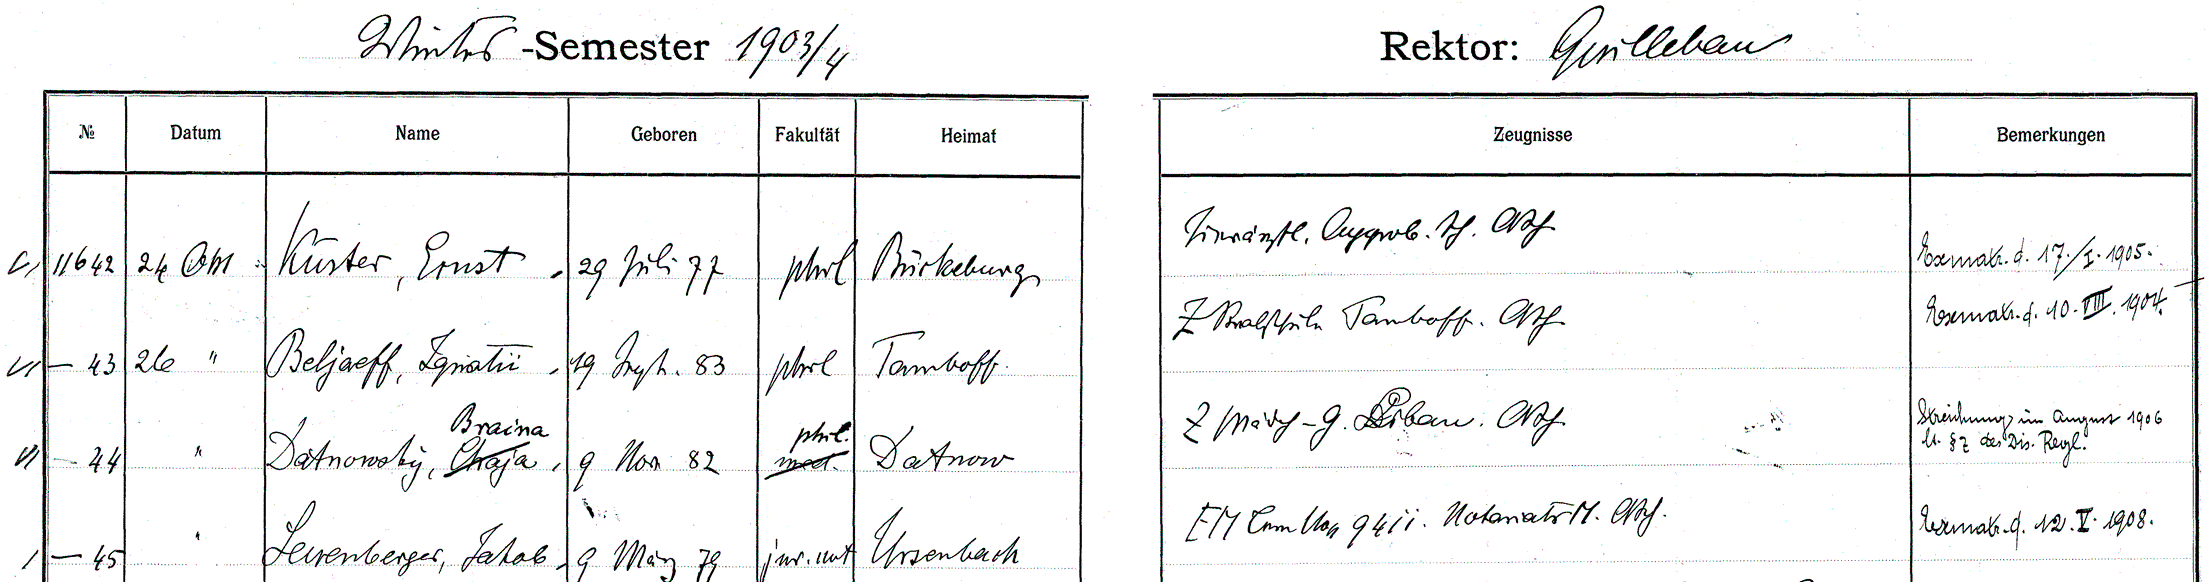 Winter -Semester 1903/4 Rektor: Guillebeau
№ Datum Name Geboren Fakultät Heimat Zeugnisse Bemerkungen
11642 24 Okt Küster, Ernst 29 Juli 77 phil Bückeburg Tierärztl. Approb. Exmatr. d. 17./I. 1905.
— 43 26 " Beljaeff, Ignatii 19 83 phil Tamboff. Z Realschule Tamboff. Exmatr. d. 10. VIII. 1904.
Braina phil.
— 44 " Datnowsky, Chaja, 9 Nov 82 med. Datnow Z Mädch-G. Libau. Streichung im August 1906
§ 7 des Dis. Regl.
— 45 " Leuenberger, Jakob 9 März 79 jur. Ursenbach Notariats M. Exmatr. d. 12. V. 1908.